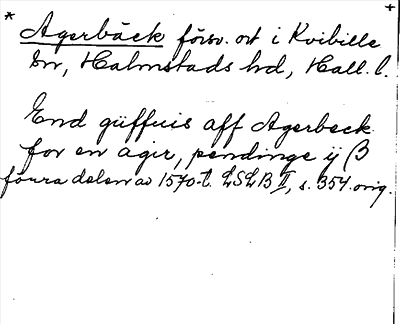 * Agerbäck försv. ort i Kvibille +
sn, Halmstads hd, Hall. l.
End giiffuis aff Agerbeck
for en agir, pendinge ij β
förra delen av 1570-t. LSLB II, s. 354. orig.